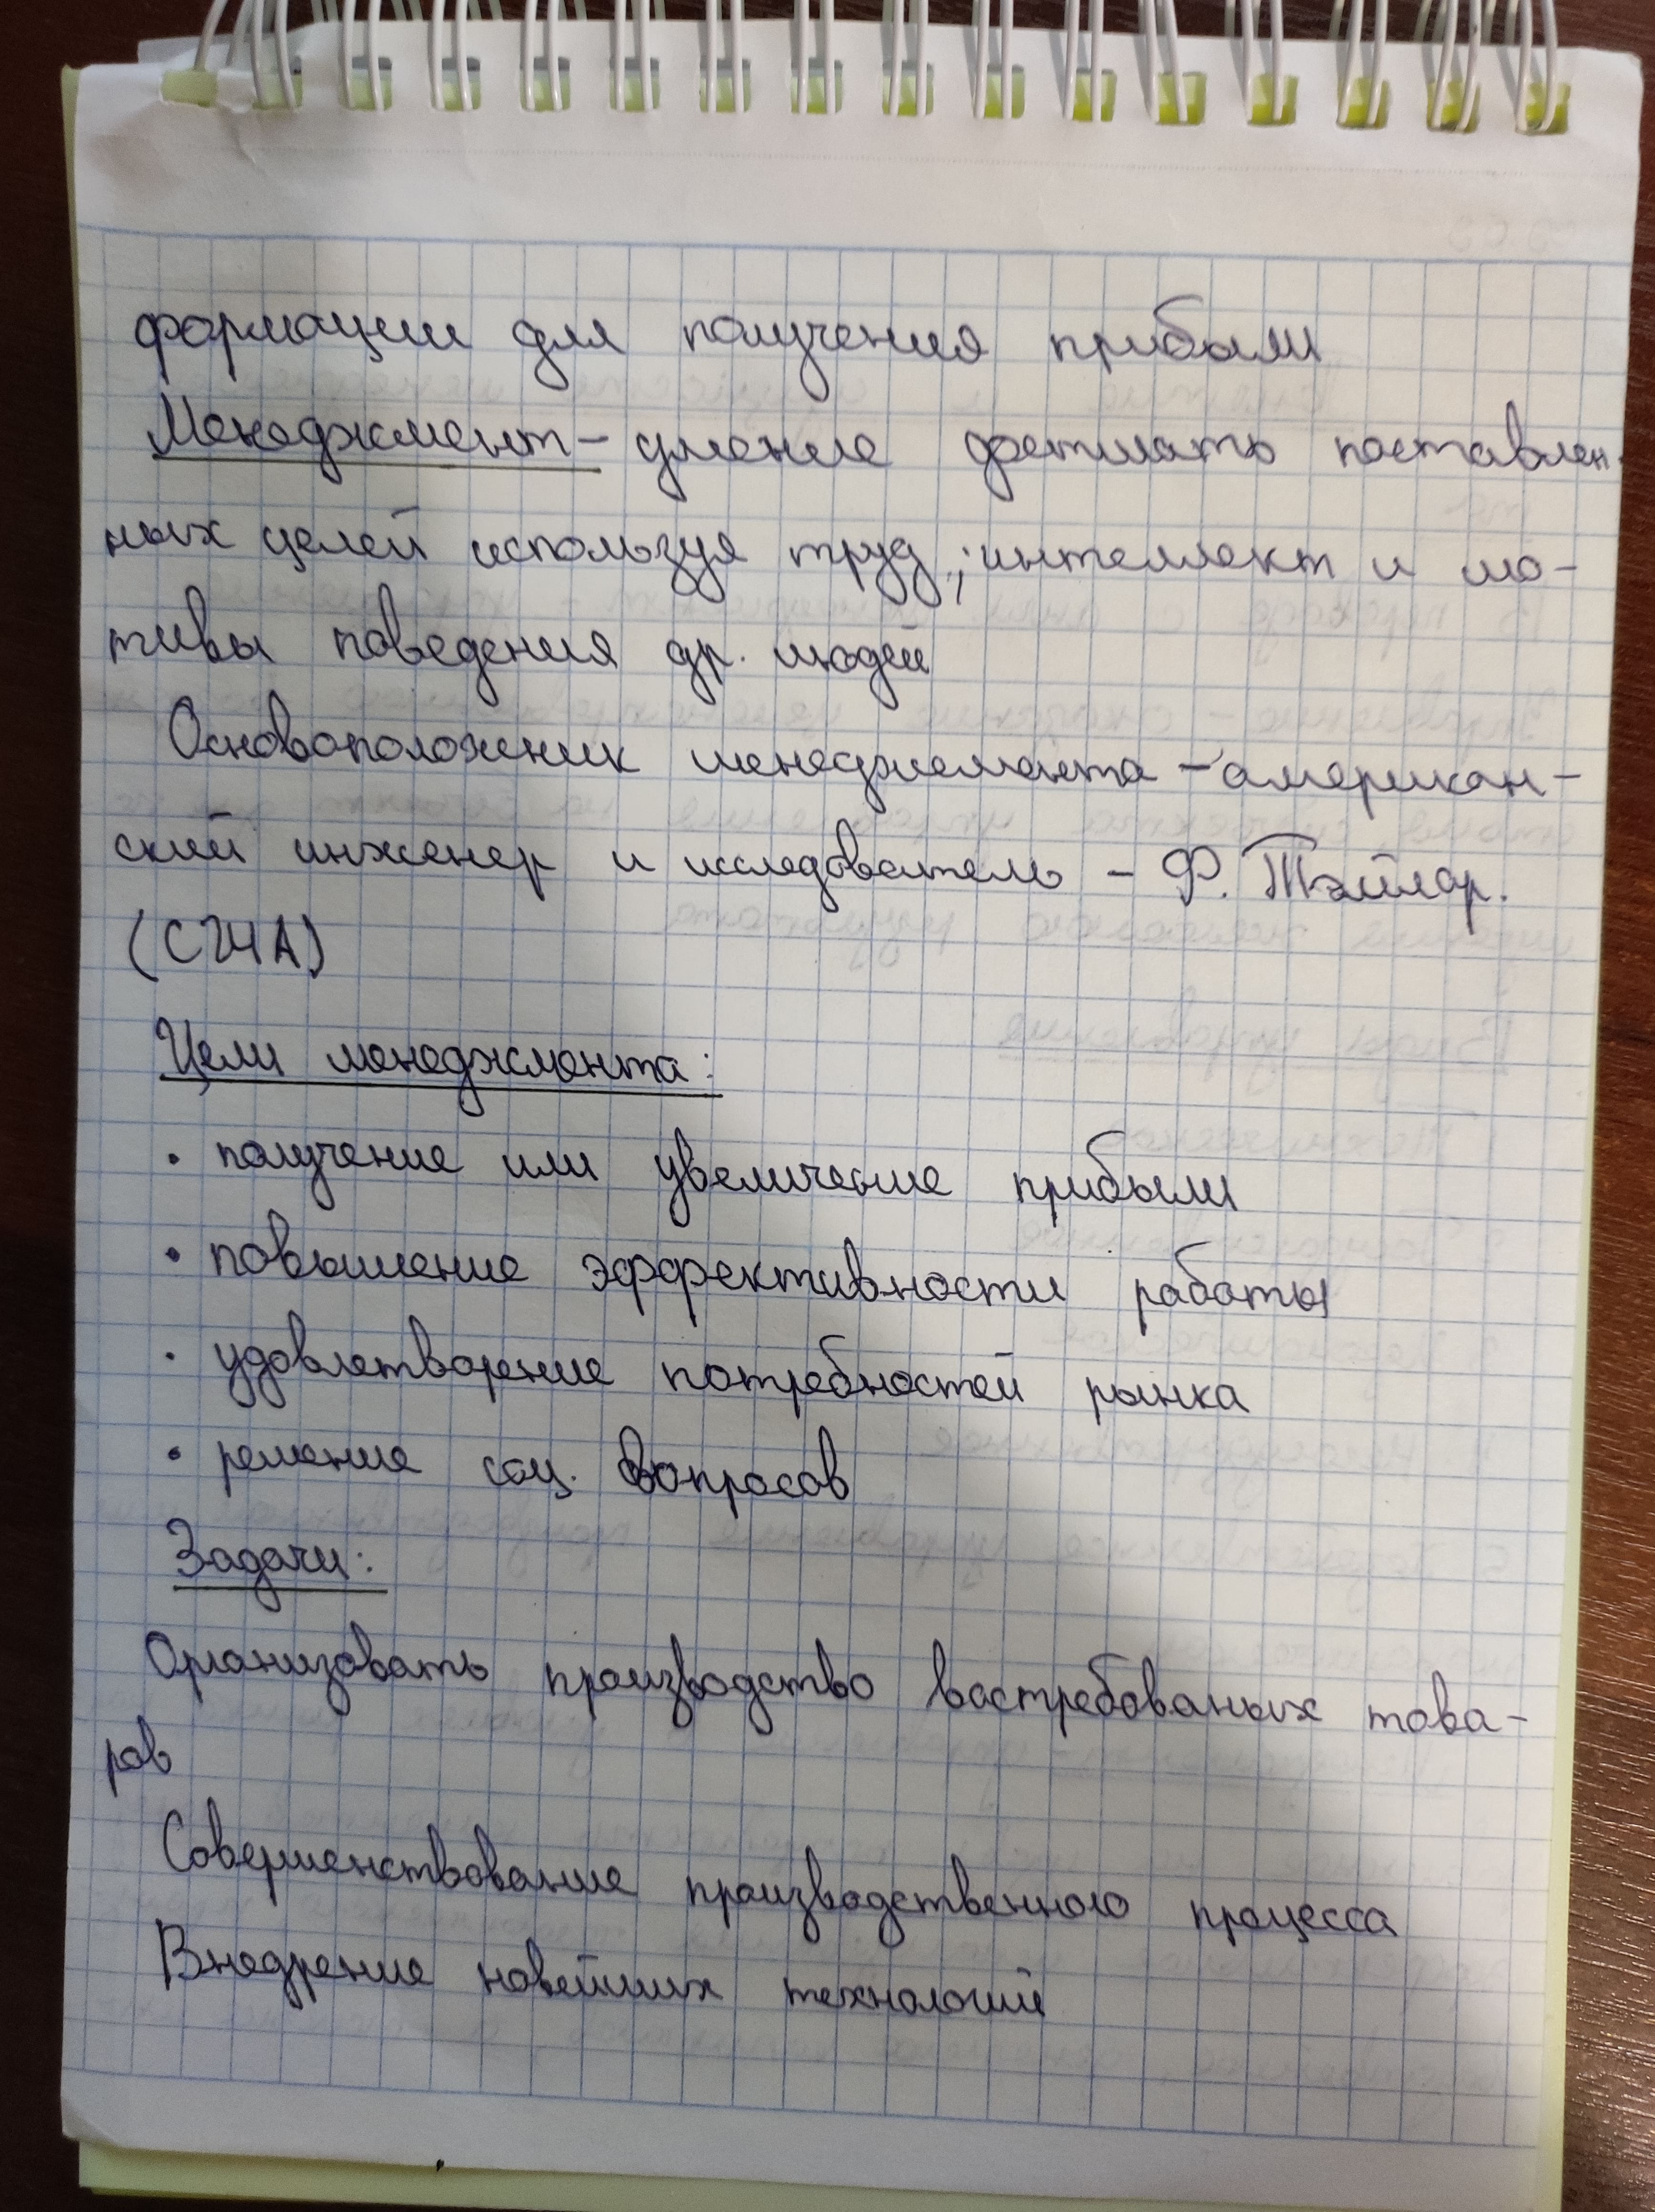 формации для получения прибыли
Менеджмент - умение достигать поставлен-
ных целей используя труд, интеллект и мо-
тивы поведения др. людей
Основоположник менеджемента - американ-
ский инженер и исследователь - Ф. Тэйлор.
(США)
Цели менеджмента:
• получение или увеличение прибыли
• повышение эффективности работы
• удовлетворение потребностей рынка
• решение соц. вопросов
Задачи:
Организовать производство востребованых това-
ров
Совершенствование производственного процесса
Внедрение новейших технологий